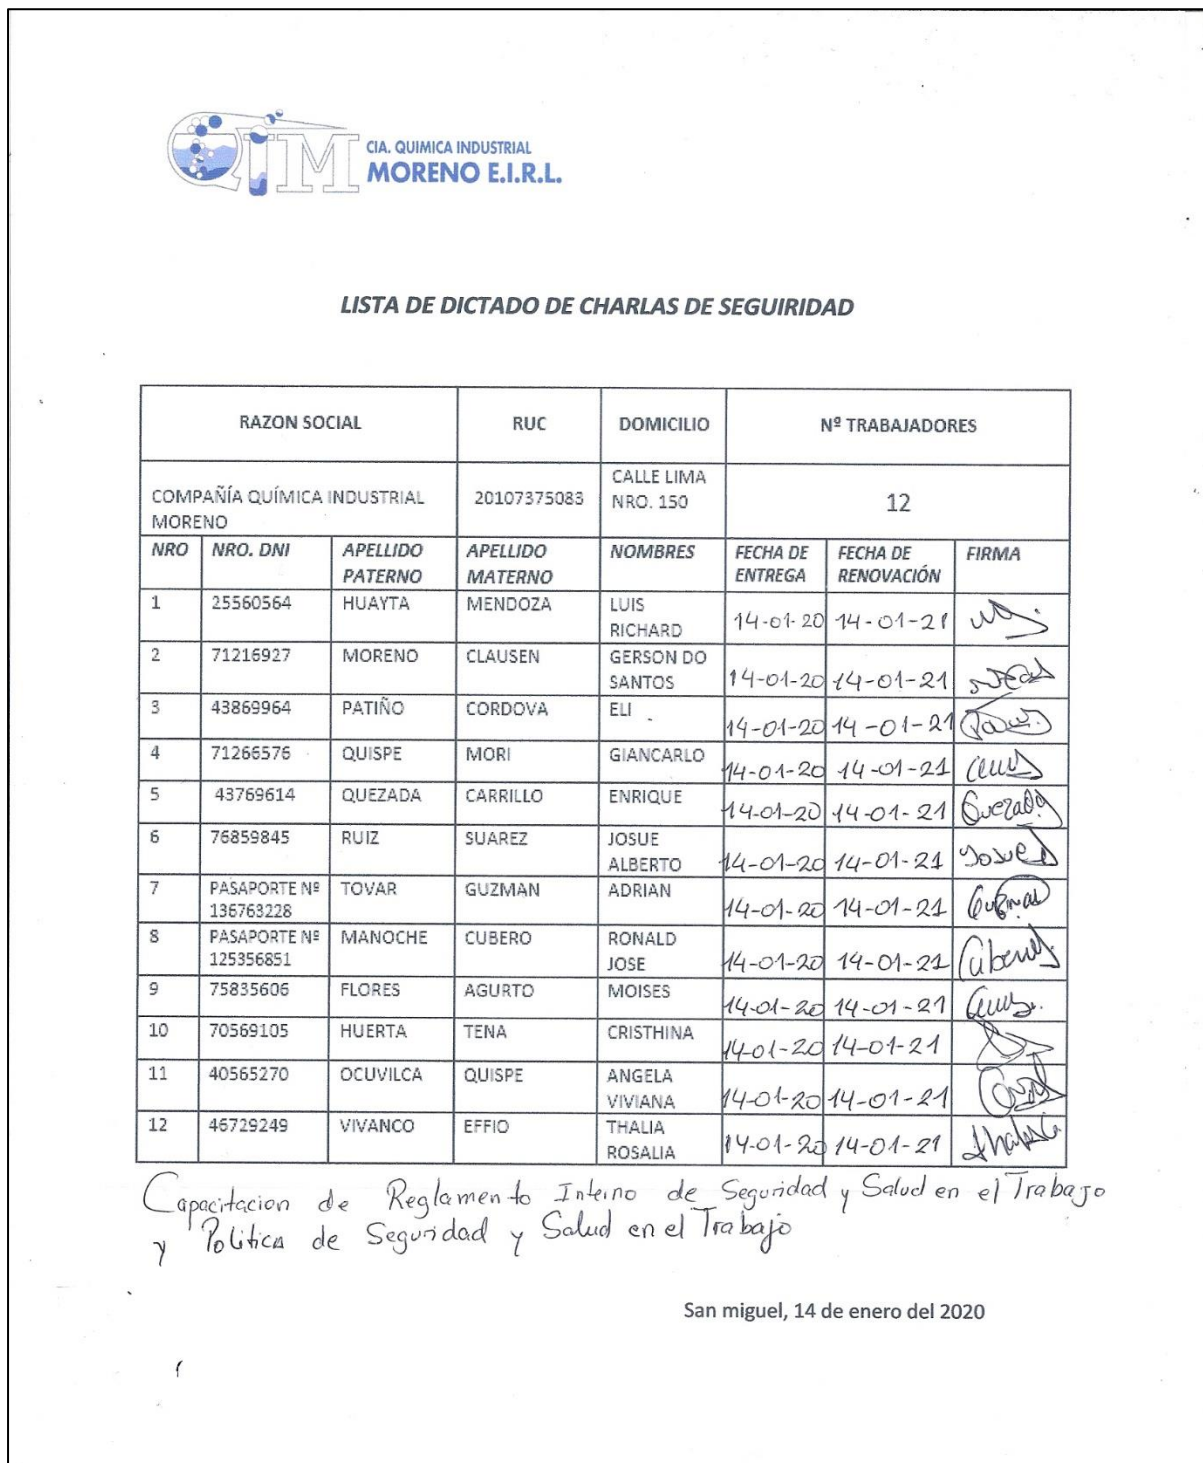 QIM
CIA. QUIMICA INDUSTRIAL
MORENO E.I.R.L.
LISTA DE DICTADO DE CHARLAS DE SEGUIRIDAD
RAZON SOCIAL RUC DOMICILIO Nº TRABAJADORES
COMPAÑÍA QUÍMICA INDUSTRIAL MORENO 20107375083 CALLE LIMA NRO. 150 12
NRO NRO. DNI APELLIDO PATERNO APELLIDO MATERNO NOMBRES FECHA DE ENTREGA FECHA DE RENOVACIÓN FIRMA
1 25560564 HUAYTA MENDOZA LUIS RICHARD 14-01-20 14-01-21
2 71216927 MORENO CLAUSEN GERSON DO SANTOS 14-01-20 14-01-21
3 43869964 PATIÑO CORDOVA ELI 14-01-20 14-01-21
4 71266576 QUISPE MORI GIANCARLO 14-01-20 14-01-21
5 43769614 QUEZADA CARRILLO ENRIQUE 14-01-20 14-01-21 Quezada
6 76859845 RUIZ SUAREZ JOSUE ALBERTO 14-01-20 14-01-21 Josue
7 PASAPORTE Nº 136763228 TOVAR GUZMAN ADRIAN 14-01-20 14-01-21
8 PASAPORTE Nº 125356851 MANOCHE CUBERO RONALD JOSE 14-01-20 14-01-21
9 75835606 FLORES AGURTO MOISES 14-01-20 14-01-21
10 70569105 HUERTA TENA CRISTHINA 14-01-20 14-01-21
11 40565270 OCUVILCA QUISPE ANGELA VIVIANA 14-01-20 14-01-21
12 46729249 VIVANCO EFFIO THALIA ROSALIA 14-01-20 14-01-21
Capacitacion de Reglamento Interno de Seguridad y Salud en el Trabajo
y Politica de Seguridad y Salud en el Trabajo
San miguel, 14 de enero del 2020